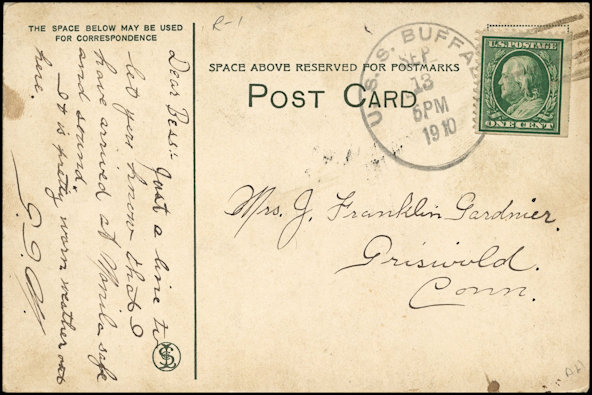 THE SPACE BELOW MAY BE USED
FOR CORRESPONDENCE
R-1
SPACE ABOVE RESERVED FOR POSTMARKS
POST CARD
U.S.S. BUFFAL
SEP
13
6PM
1910
U.S.POSTAGE
ONE CENT
Dear Bess:- Just a line to
let you know that I
have arrived at Manila safe
and sound.
It is pretty warm weather out
here.
Mrs. J. Franklin Gardner.
Griswold.
Conn.